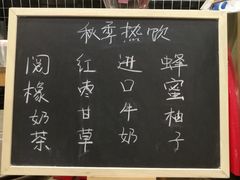 秋季热饮
阁橡奶茶
红枣甘草
进口牛奶
蜂蜜柚子